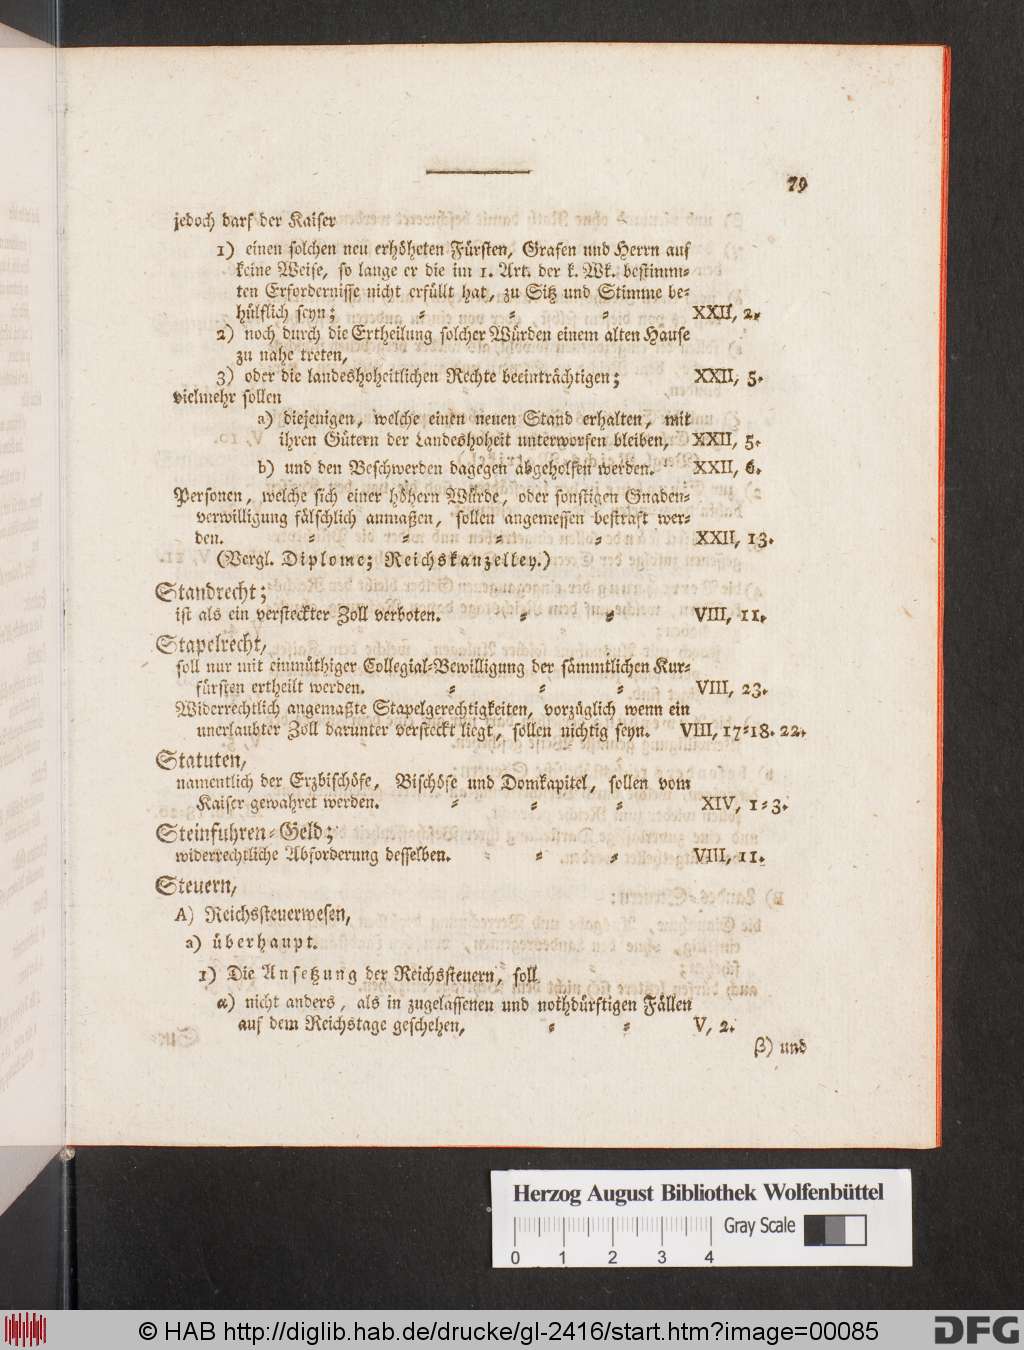 79
jedoch darf der Kaiser
1) einen solchen neu erhöheten Fürsten, Grafen und Herrn auf
keine Weise, so lange er die im 1. Art. der k. Wk. bestimm-
ten Erfordernisse nicht erfüllt hat, zu Sitz und Stimme be-
hülflich seyn; XXII, 2.
2) noch durch die Ertheilung solcher Würden einem alten Hause
zu nahe treten,
3) oder die landeshoheitlichen Rechte beeinträchtigen; XXII, 5.
vielmehr sollen
a) diejenigen, welche einen neuen Stand erhalten, mit
ihren Gütern der Landeshoheit unterworfen bleiben, XXII, 5.
b) und den Beschwerden dagegen abgeholfen werden. XXII, 6.
Personen, welche sich einer höhern Würde, oder sonstigen Gnaden-
verwilligung fälschlich anmaßen, sollen angemessen bestraft wer-
den. XXII, 13.
(Vergl. Diplome; Reichskanzelley.)
Standrecht;
ist als ein versteckter Zoll verboten. VIII, 11.
Stapelrecht,
soll nur mit einmüthiger Collegial-Bewilligung der sämmtlichen Kur-
fürsten ertheilt werden. VIII, 23.
Widerrechtlich angemaßte Stapelgerechtigkeiten, vorzüglich wenn ein
unerlaubter Zoll darunter versteckt liegt, sollen nichtig seyn. VIII, 17-18. 22.
Statuten,
namentlich der Erzbischöfe, Bischöfe und Domkapitel, sollen vom
Kaiser gewahret werden. XIV, 1-3.
Steinfuhren-Geld;
widerrechtliche Abforderung desselben. VIII, 11.
Steuern,
A) Reichssteuerwesen,
a) überhaupt.
1) Die Ansetzung der Reichssteuern, soll
α) nicht anders, als in zugelassenen und nothdürftigen Fällen
auf dem Reichstage geschehen, V, 2.
β) und
Herzog August Bibliothek Wolfenbüttel
Gray Scale
0 1 2 3 4
© HAB http://diglib.hab.de/drucke/gl-2416/start.htm?image=00085
DFG